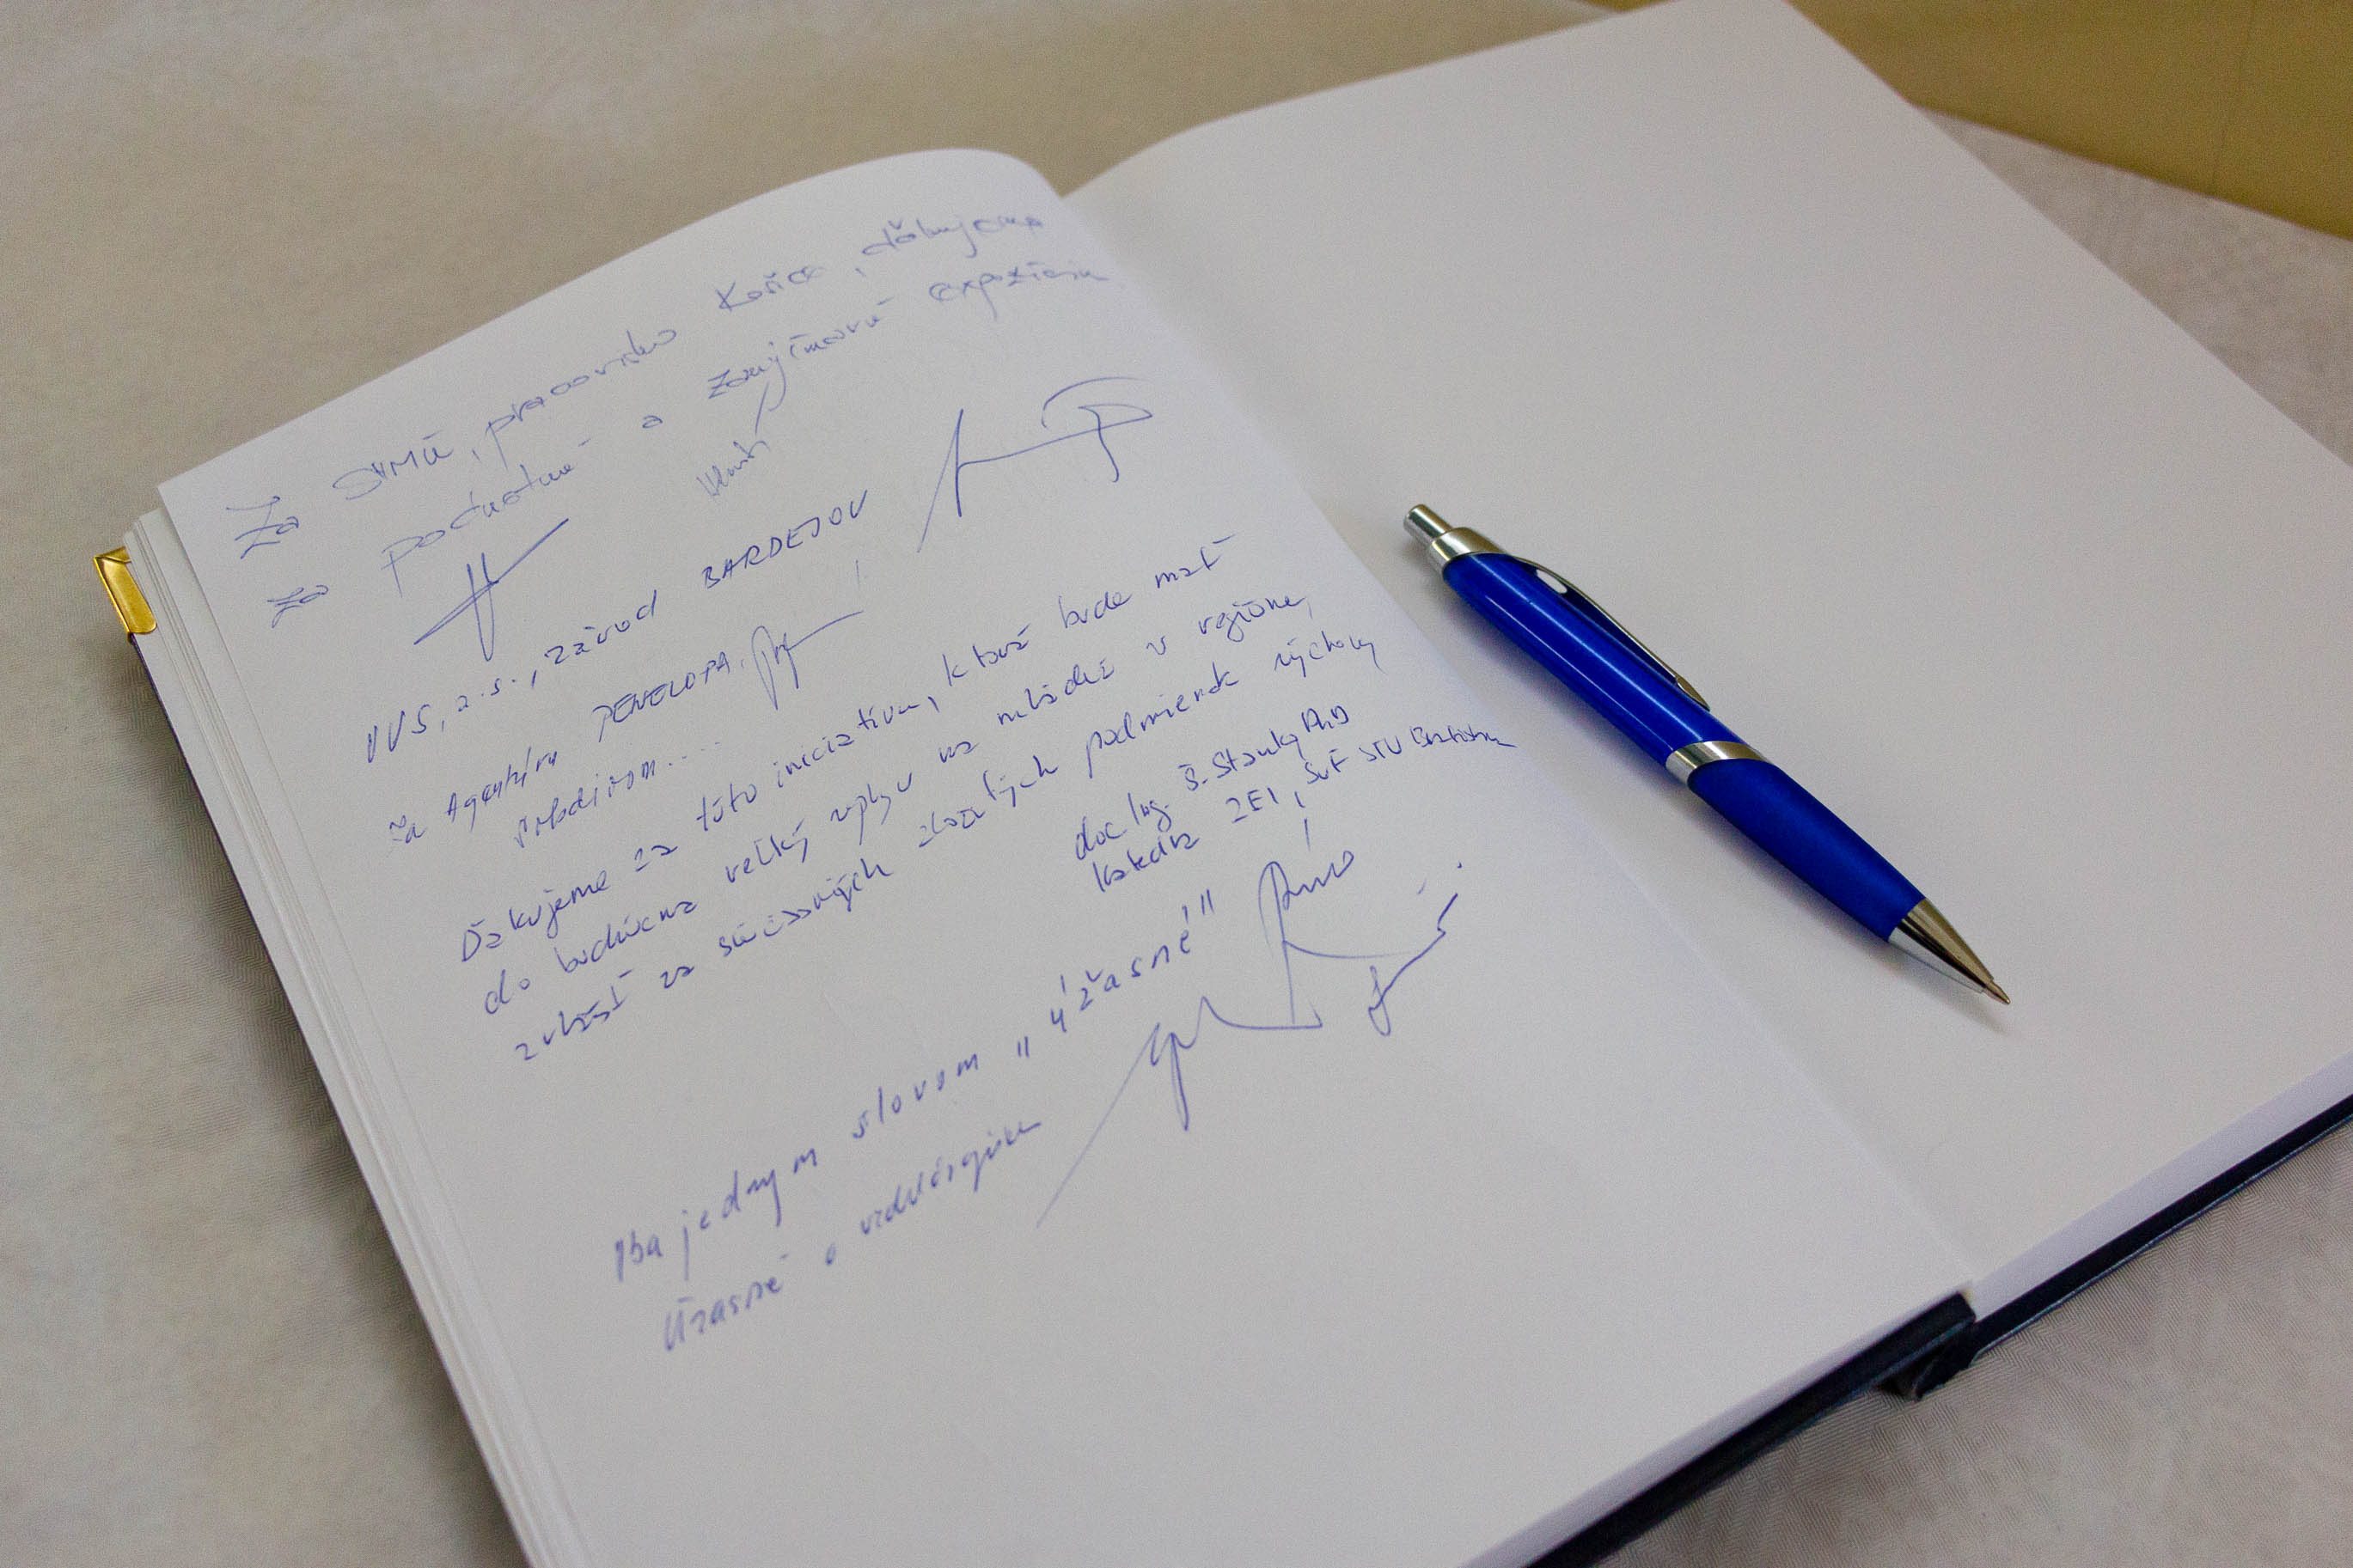 Za SHMÚ, pracovisko Košice, ďakujeme
za podnetnú a zaujímavú expozíciu
VVS, a.s., závod BARDEJOV
Za Agentúru PENELOPA
Ďakujeme za túto iniciatívu, ktorá bude mať
do budúcna veľký vplyv na mládež v regióne,
zvlášť za súčasných zložitých podmienok výchovy
doc Ing. Š. Stanko PhD
Katedra ZEI, SvF STU Bratislava
Iba jedným slovom "úžasné"
Úžasné o vzdelávaní